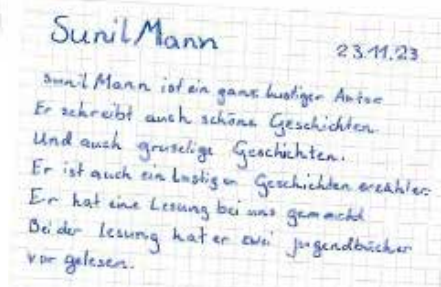 Sunil Mann
23.11.23
Sunil Mann ist ein ganz lustiger Autor
Er schreibt auch schöne Geschichten
Und auch gruselige Geschichten.
Er ist auch ein lustiger Geschichten erzähler.
Er hat eine Lesung bei uns gemacht
Bei der Lesung hat er zwei jugendbücher
vor gelesen.